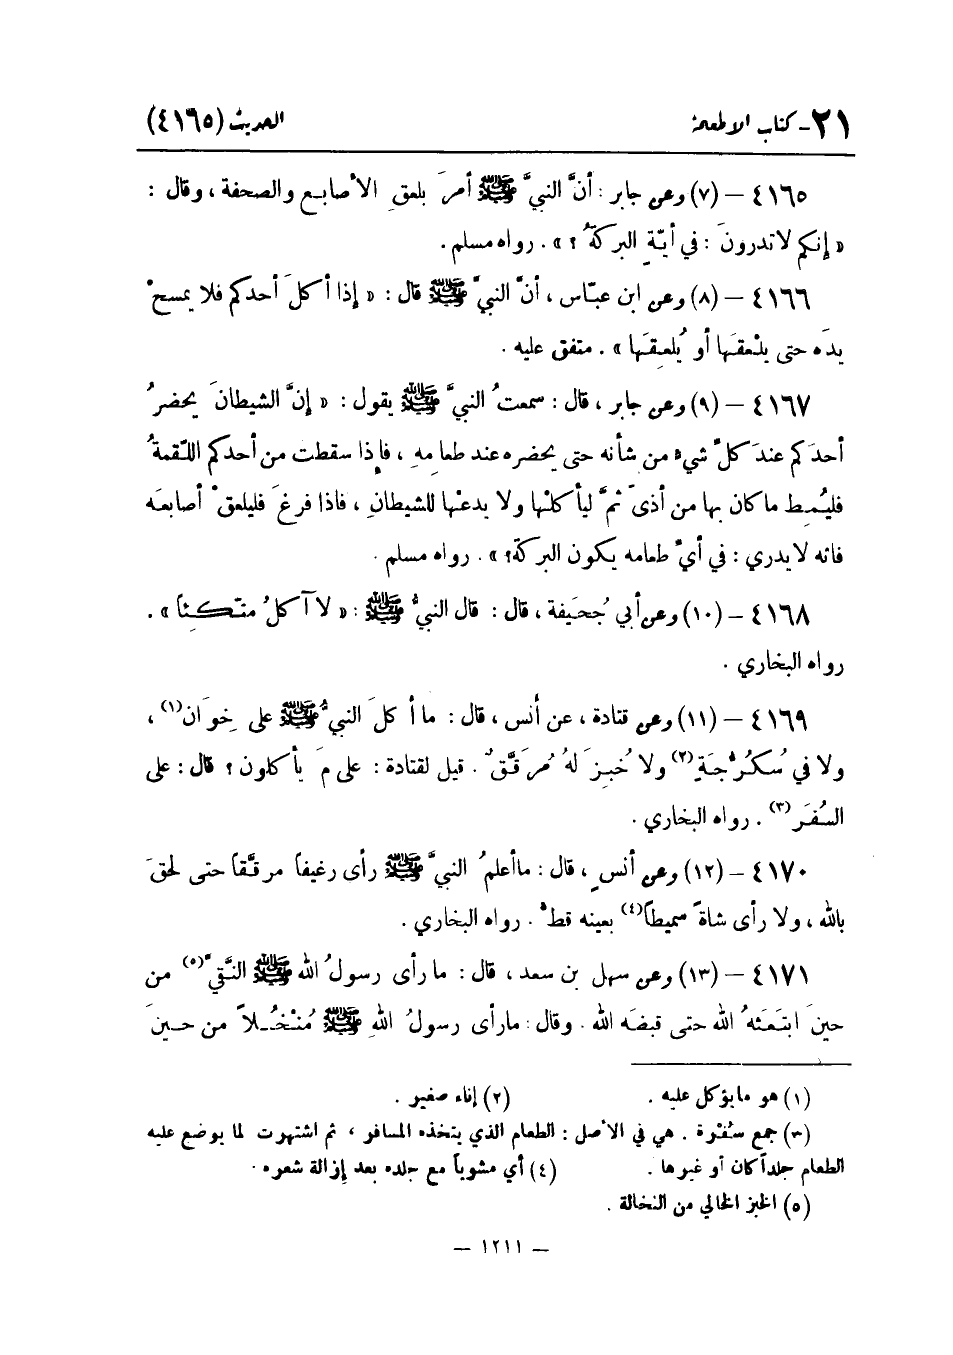 ٢١- كتاب الاطعمة الحديث (٤١٦٥)
٤١٦٥ – (٧) وعن جابر : أنَّ النبيَّ ﷺ أمرَ بلعقِ الأصابع والصحفة ، وقال :
« إنكم لاتدرونَ : في أيّةٍ البركةُ ؟ » . رواه مسلم .
٤١٦٦ – (٨) وعن ابن عبّاس ، أنَّ النبيَّ ﷺ قال : « إذا أكلَ أحدكم فلا يمسحْ
يدَه حتى يلْعقَها أو يُلعِقَها » . متفق عليه .
٤١٦٧ – (٩) وعن جابر ، قال : سمعتُ النبيَّ ﷺ يقول : « إنَّ الشيطانَ يحضرُ
أحدَكم عندَ كلِّ شيء من شأنه حتى يحضره عند طعامِه ، فإذا سقطت من أحدكم اللّقمةُ
فليُمِط ماكان بها من أذىً ثمَّ ليأكلْها ولا يدعْها للشيطانِ ، فاذا فرغَ فليلعقْ أصابعَه
فانه لايدري : في أيّ طعامه يكون البركة؟ » . رواه مسلم .
٤١٦٨ – (١٠) وعن أبي جُحَيفة ، قال : قال النبيُّ ﷺ : « لا آكلُ متّكئاً » .
رواه البخاري .
٤١٦٩ – (١١) وعن قتادة ، عن أنس ، قال : ما أكلَ النبيُّ ﷺ على خِوَان(١) ،
ولا في سُكُرُّجَةٍ(٢) ولا خُبِزَ لهُ مُرَقَّقٌ . قيل لقتادة : على مَ يأكلون ؟ قال : على
السُفَر(٣) . رواه البخاري .
٤١٧٠ – (١٢) وعن أنسٍ ، قال : ماأعلمُ النبيَّ ﷺ رأى رغيفاً مرقَّقاً حتى لحقَ
بالله ، ولا رأى شاةً سميطاً(٤) بعينه قطُّ . رواه البخاري .
٤١٧١ – (١٣) وعن سهل بن سعد ، قال : مارأى رسولُ الله ﷺ النَّقيَّ(٥) من
حينَ ابتَعَثهُ الله حتى قبضَه الله . وقال : مارأى رسولُ اللهِ ﷺ مُنْخُلاً من حينَ
(١) هو مايؤكل عليه . (٢) إناء صغير .
(٣) جمع سُفْرة . هي في الأصل : الطعام الذي يتخذه المسافر ، ثم اشتهرت لما يوضع عليه
الطعام جلداً كان أو غيرها . (٤) أي مشوياً مع جلده بعد إزالة شعره .
(٥) الخبز الخالي من النخالة .
— ١٢١١ —